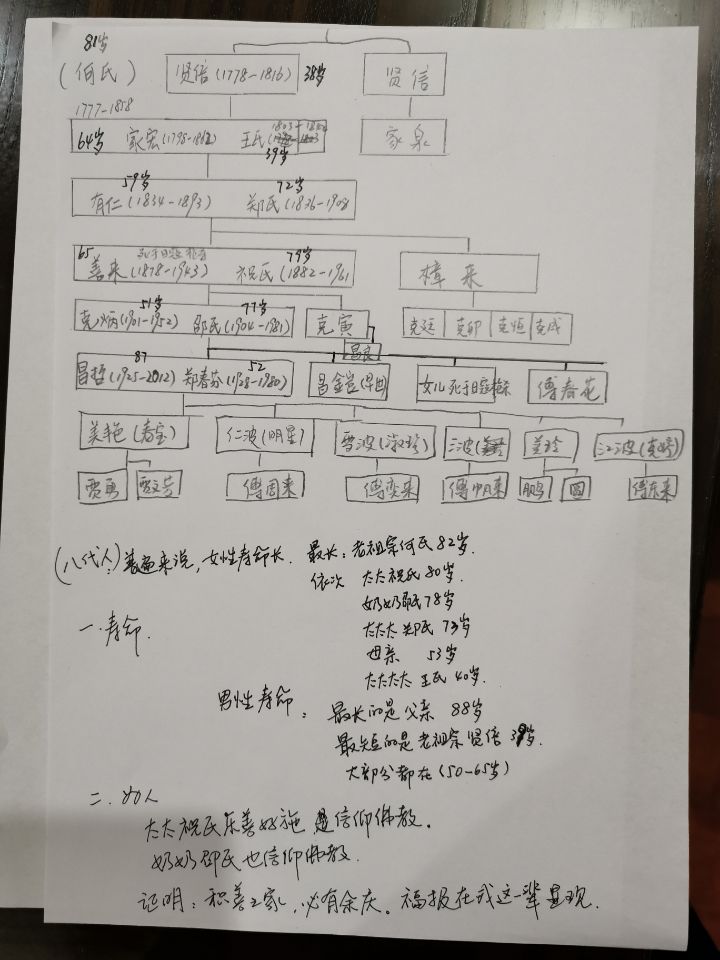 81岁
(何氏) 贤倍(1778-1816) 38岁 贤信
1777-1858
64岁 家宏(1798-1862) 王氏 39岁 家泉
59岁 72岁
有仁(1834-1893) 郑氏(1836-1908
65 死于日寇 79岁
善来(1878-1943) 祝氏(1882-1961 樟来
51岁 77岁
克炳(1901-1952) 邵氏(1904-1981) 克寅 克廷 克卯 克恒 克成
昌良
87 52
昌哲(1925-2012) 郑春芬(1928-1980) 昌金 女儿死于日寇 傅春花
美艳(春宝) 仁波(明星) 雪波(淑珍) 三波 美玲 江波(克婷)
贾勇 贾文芳 傅周来 傅栾来 傅帅来 鹏 圆 傅东来
(八代人): 普遍来说,女性寿命长. 最长:老祖宗何氏82岁.
依次 太太祝氏80岁.
奶奶邵氏78岁
一.寿命. 太太太郑氏 73岁
母亲 53岁
太太太太 王氏 40岁.
男性寿命: 最长的是父亲 88岁
最短的是老祖宗贤倍 39岁.
大部分都在(50-65岁)
二.为人
太太祝氏乐善好施 是信仰佛教.
奶奶邵氏也信仰佛教.
证明:积善之家,必有余庆。福报在我这一辈显现.